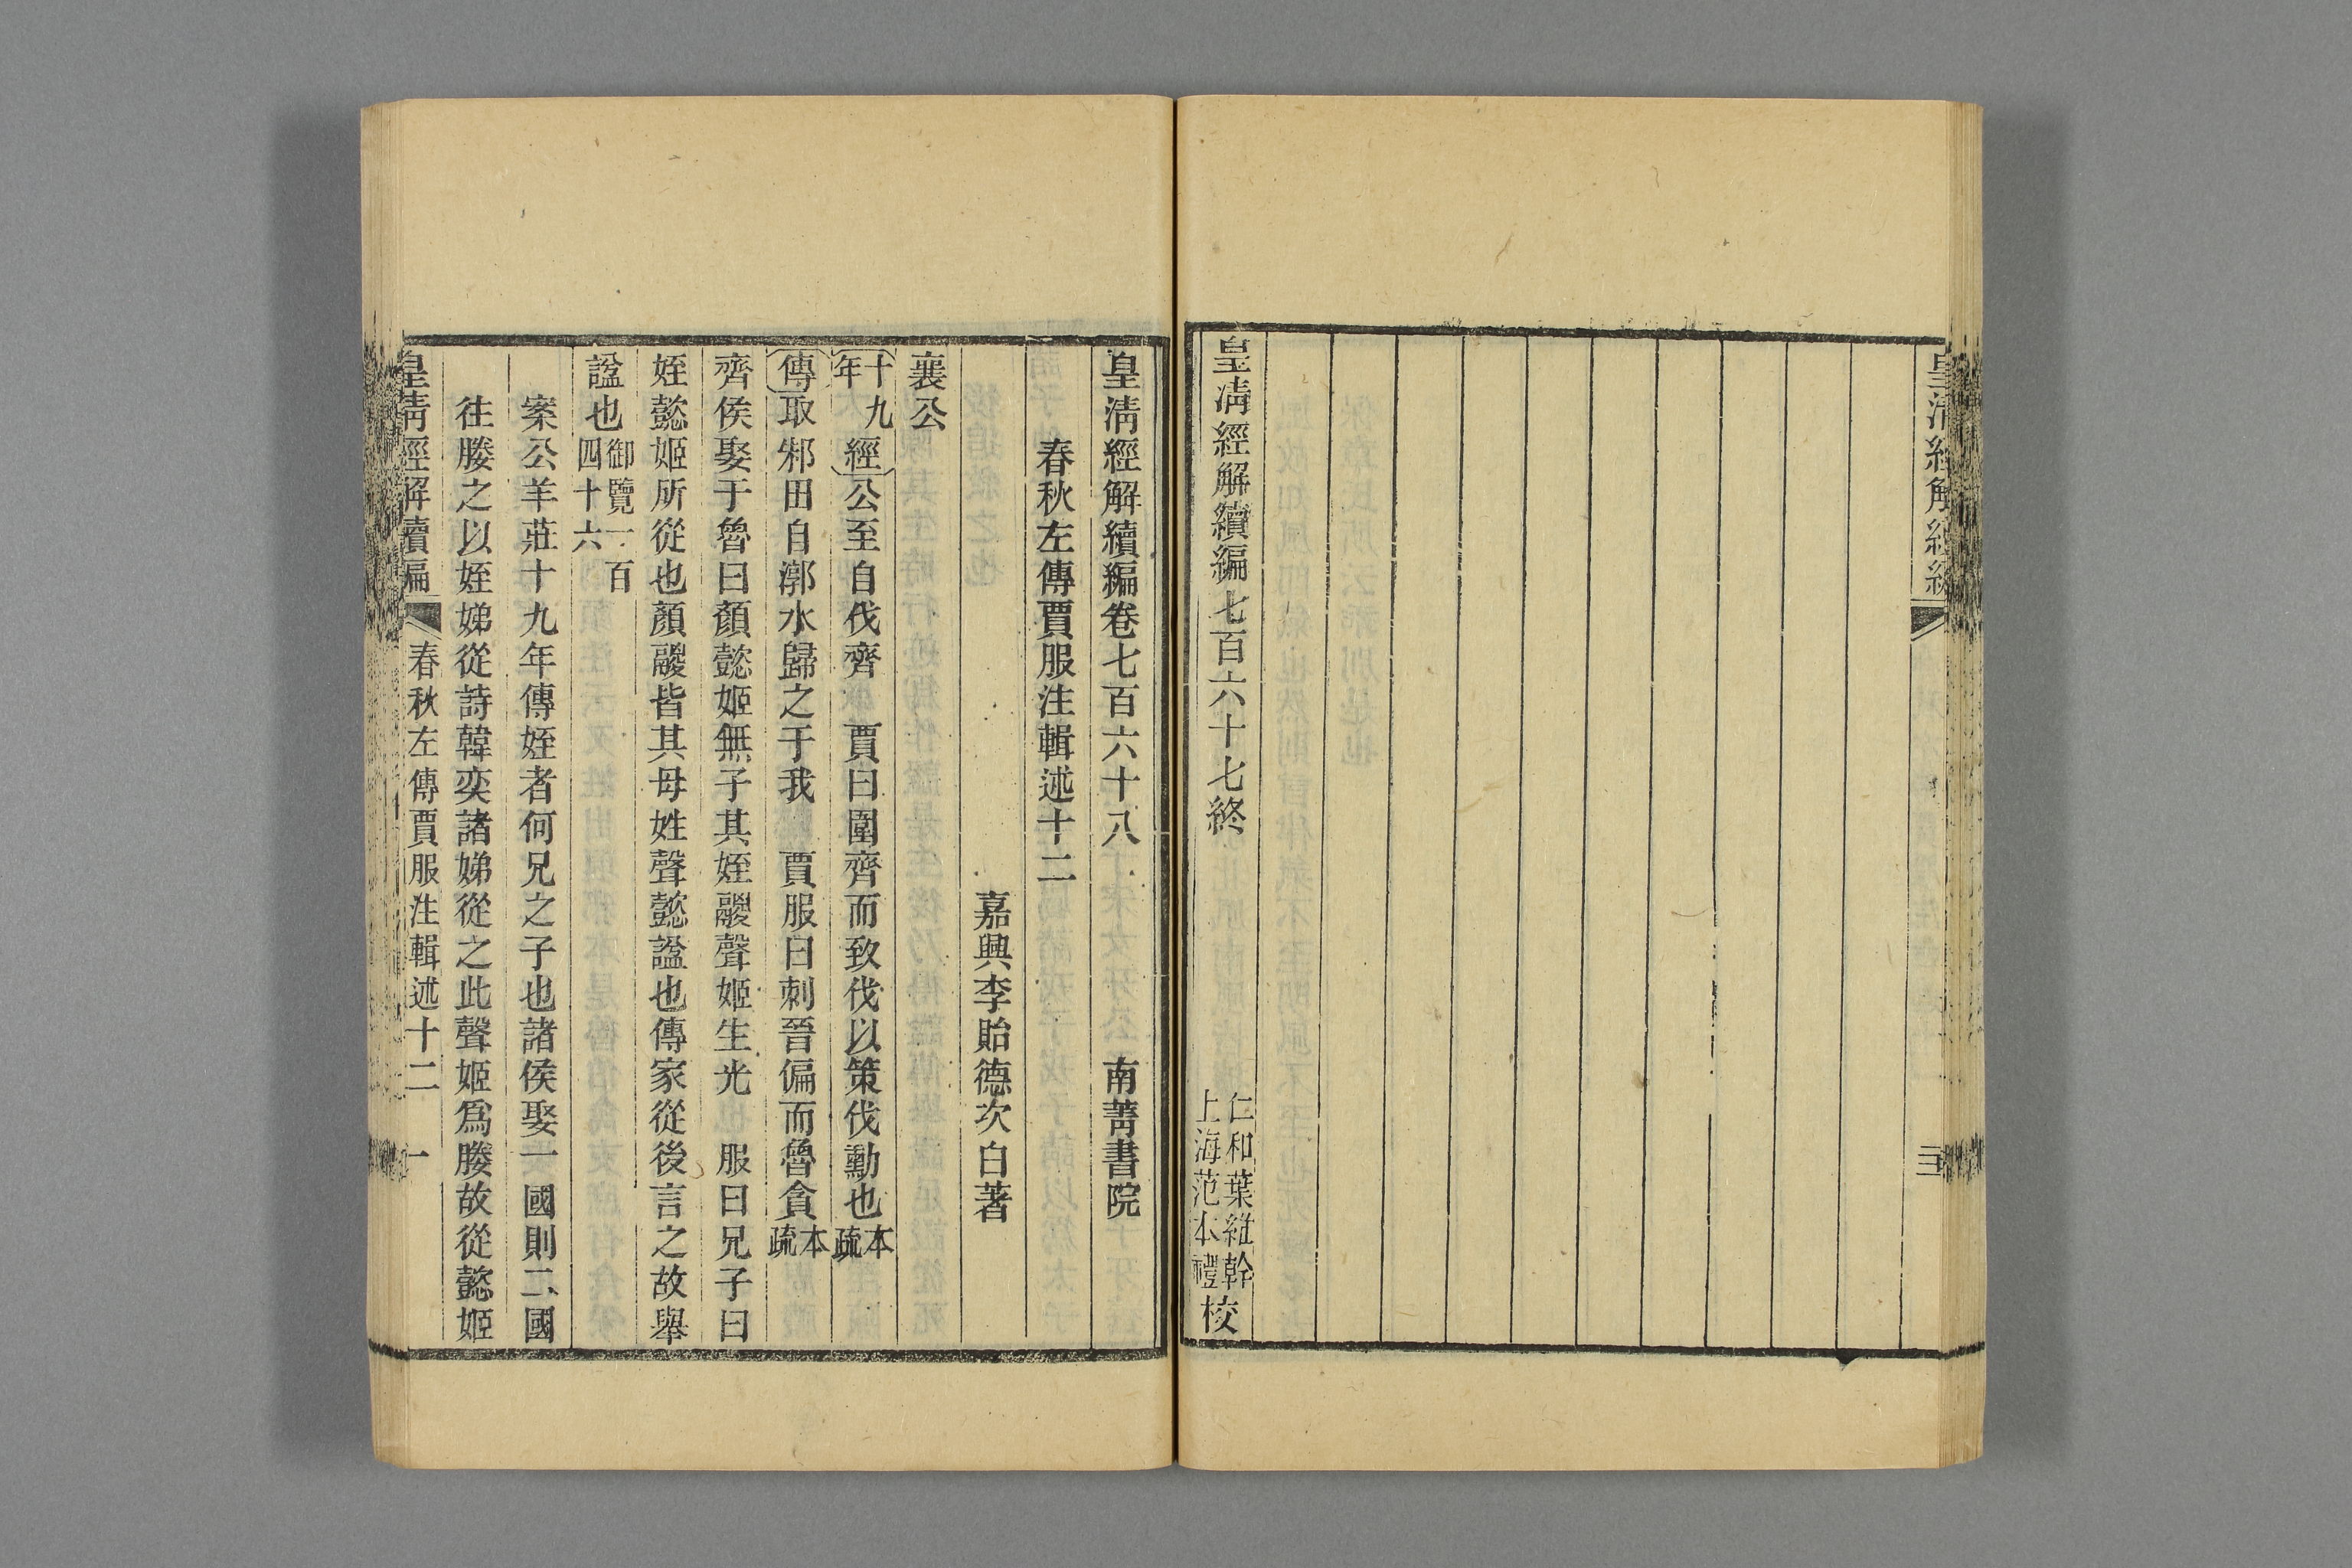 皇清經解續編七百六十七終
仁和葉維幹
上海范本禮
校
皇清經解續編卷七百六十八 南菁書院
春秋左傳賈服注輯述十二
嘉興李貽德次白著
襄公
十九年經公至自伐齊 賈曰圍齊而致伐以策伐勳也本疏
傳取邾田自漷水歸之于我 賈服曰刺晉偏而魯貪本疏
齊侯娶于魯曰顏懿姬無子其姪鬷聲姬生光 服曰兄子曰
姪懿姬所從也顏鬷皆其母姓聲懿諡也傳家從後言之故舉
諡也御覽一百四十六
案公羊莊十九年傳姪者何兄之子也諸侯娶一國則二國
往媵之以姪娣從詩韓奕諸娣從之此聲姬爲媵故從懿姬
皇清經解續編 春秋左傳賈服注輯述十二 一